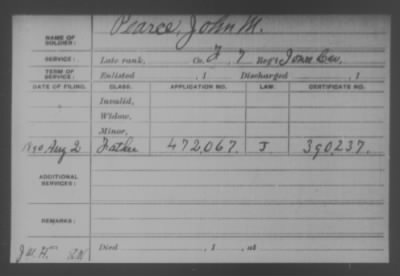 Pearce, John M.
NAME OF SOLDIER:
SERVICE: Late rank, Co. F, 7 Reg't Iowa Cav.
TERM OF SERVICE: Enlisted , 1 Discharged , 1
DATE OF FILING. CLASS. APPLICATION NO. LAW. CERTIFICATE NO.
Invalid,
Widow,
Minor,
1890 Aug 2 Father 472,067. J 390,237.
ADDITIONAL SERVICES:
REMARKS:
Died , 1 , at